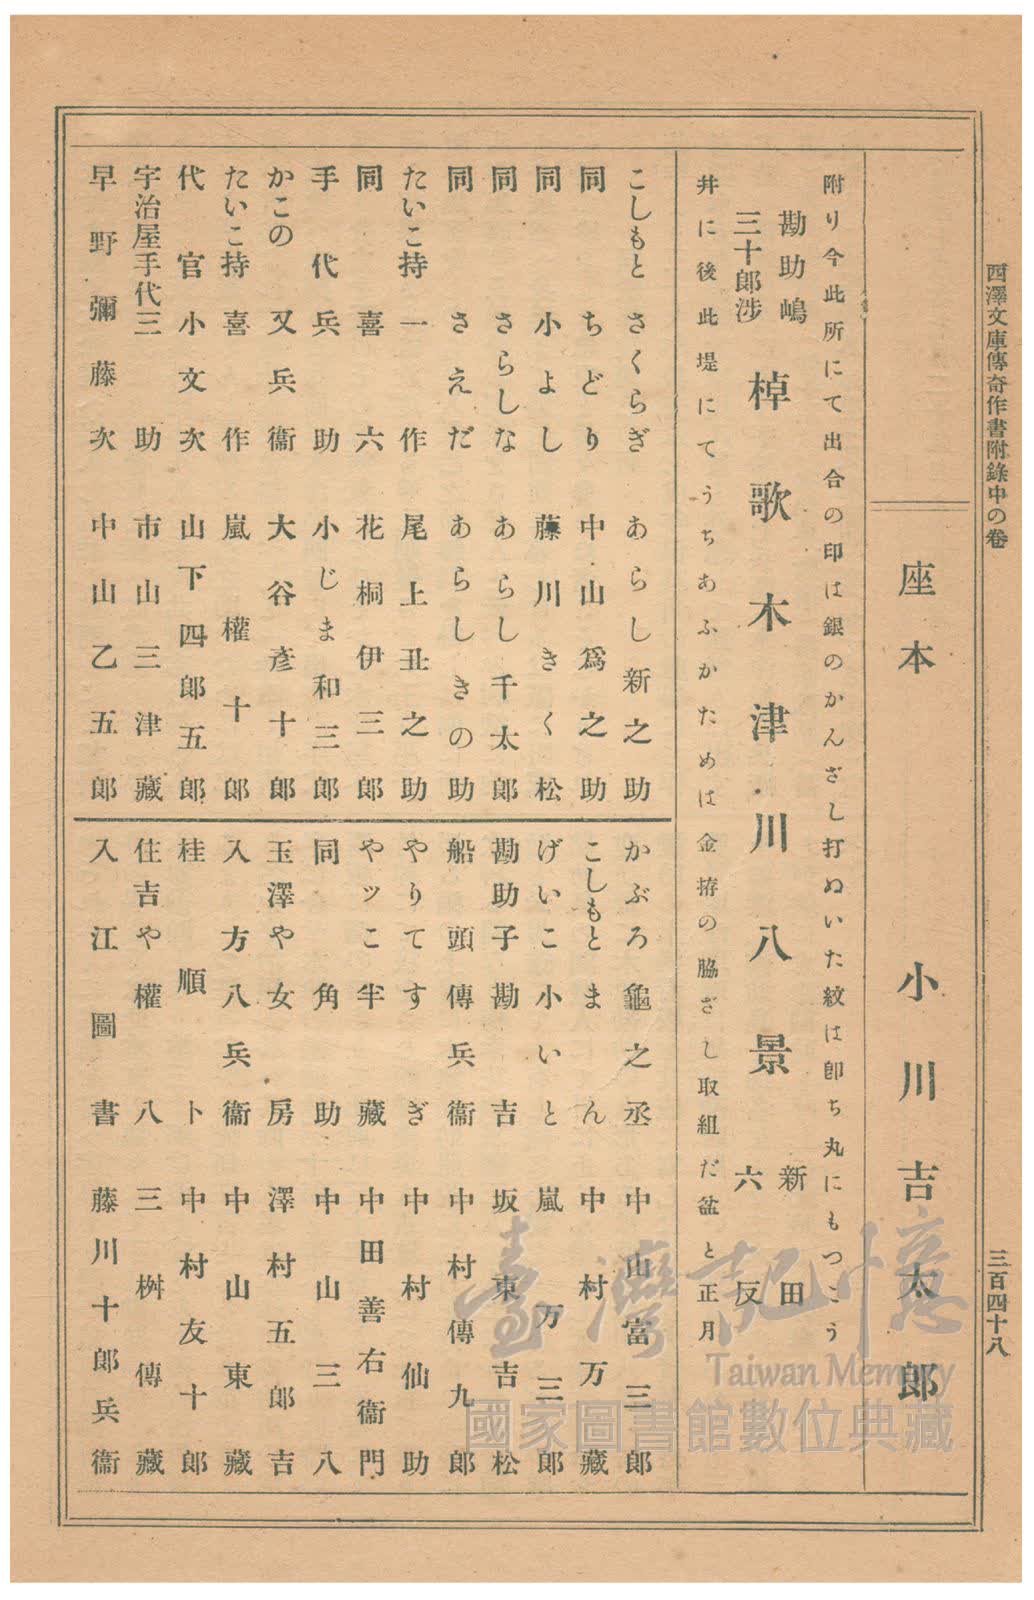 西澤文庫傳奇作書附錄中の卷
三百四十八
座本　小川吉太郎
附り今此所にて出合の印は銀のかんざし打ぬいた紋は卽ち丸にもつこう
勘助嶋
三十郎渉
棹歌木津川八景
新田
六反
井に後此堤にてうちあふかためは金拵の脇ざし取組だ盆と正月
こしもと　さくらぎ　あらし新之助
同　ちどり　中山爲之助
同　小よし　藤川きく松
同　さらしな　あらし千太郎
同　さえだ　あらしきの助
たいこ持　一作　尾上丑之助
同　喜六　花桐伊三郎
手代　兵助　小じま和三郎
かこの　又兵衞　大谷彥十郎
たいこ持　喜作　嵐權十郎
代官　小文次　山下四郎五郎
宇治屋手代　三助　市山三津藏
早野彌藤次　中山乙五郎
かぶろ　龜之丞　中山富三郎
こしもと　まん　中村万藏
げいこ　小いと　嵐万三郎
勘助子　勘吉　坂東吉松
船頭　傳兵衞　中村傳九郎
やりて　すぎ　中村仙助
やッこ　半藏　中田善右衞門
同　角助　中山三八
玉澤や女房　澤村五郎吉
入方八兵衞　中山東藏
桂順卜　中村友十郎
住吉や權八　三桝傳藏
入江圖書　藤川十郎兵衞
臺灣記憶
Taiwan Memory
國家圖書館數位典藏